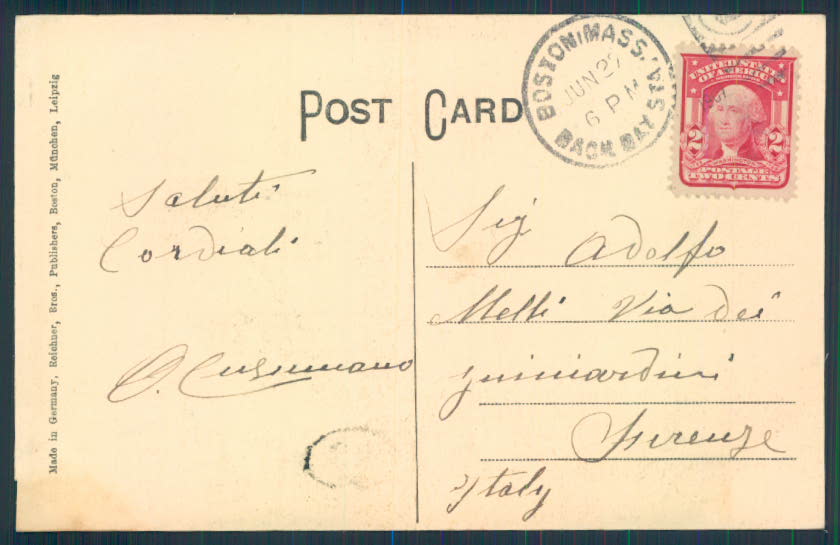 Made in Germany, Reichner, Bros., Publishers, Boston, München, Leipzig
POST CARD
BOSTON, MASS.
BACK BAY STA.
JUN 27
6 PM
UNITED STATES
OF AMERICA
2 2
WASHINGTON
POSTAGE
TWO CENTS
Saluti
Cordiali
O. Cusumano
Sig Adolfo
Melli Via dei
Guicciardini
Firenze
Italy